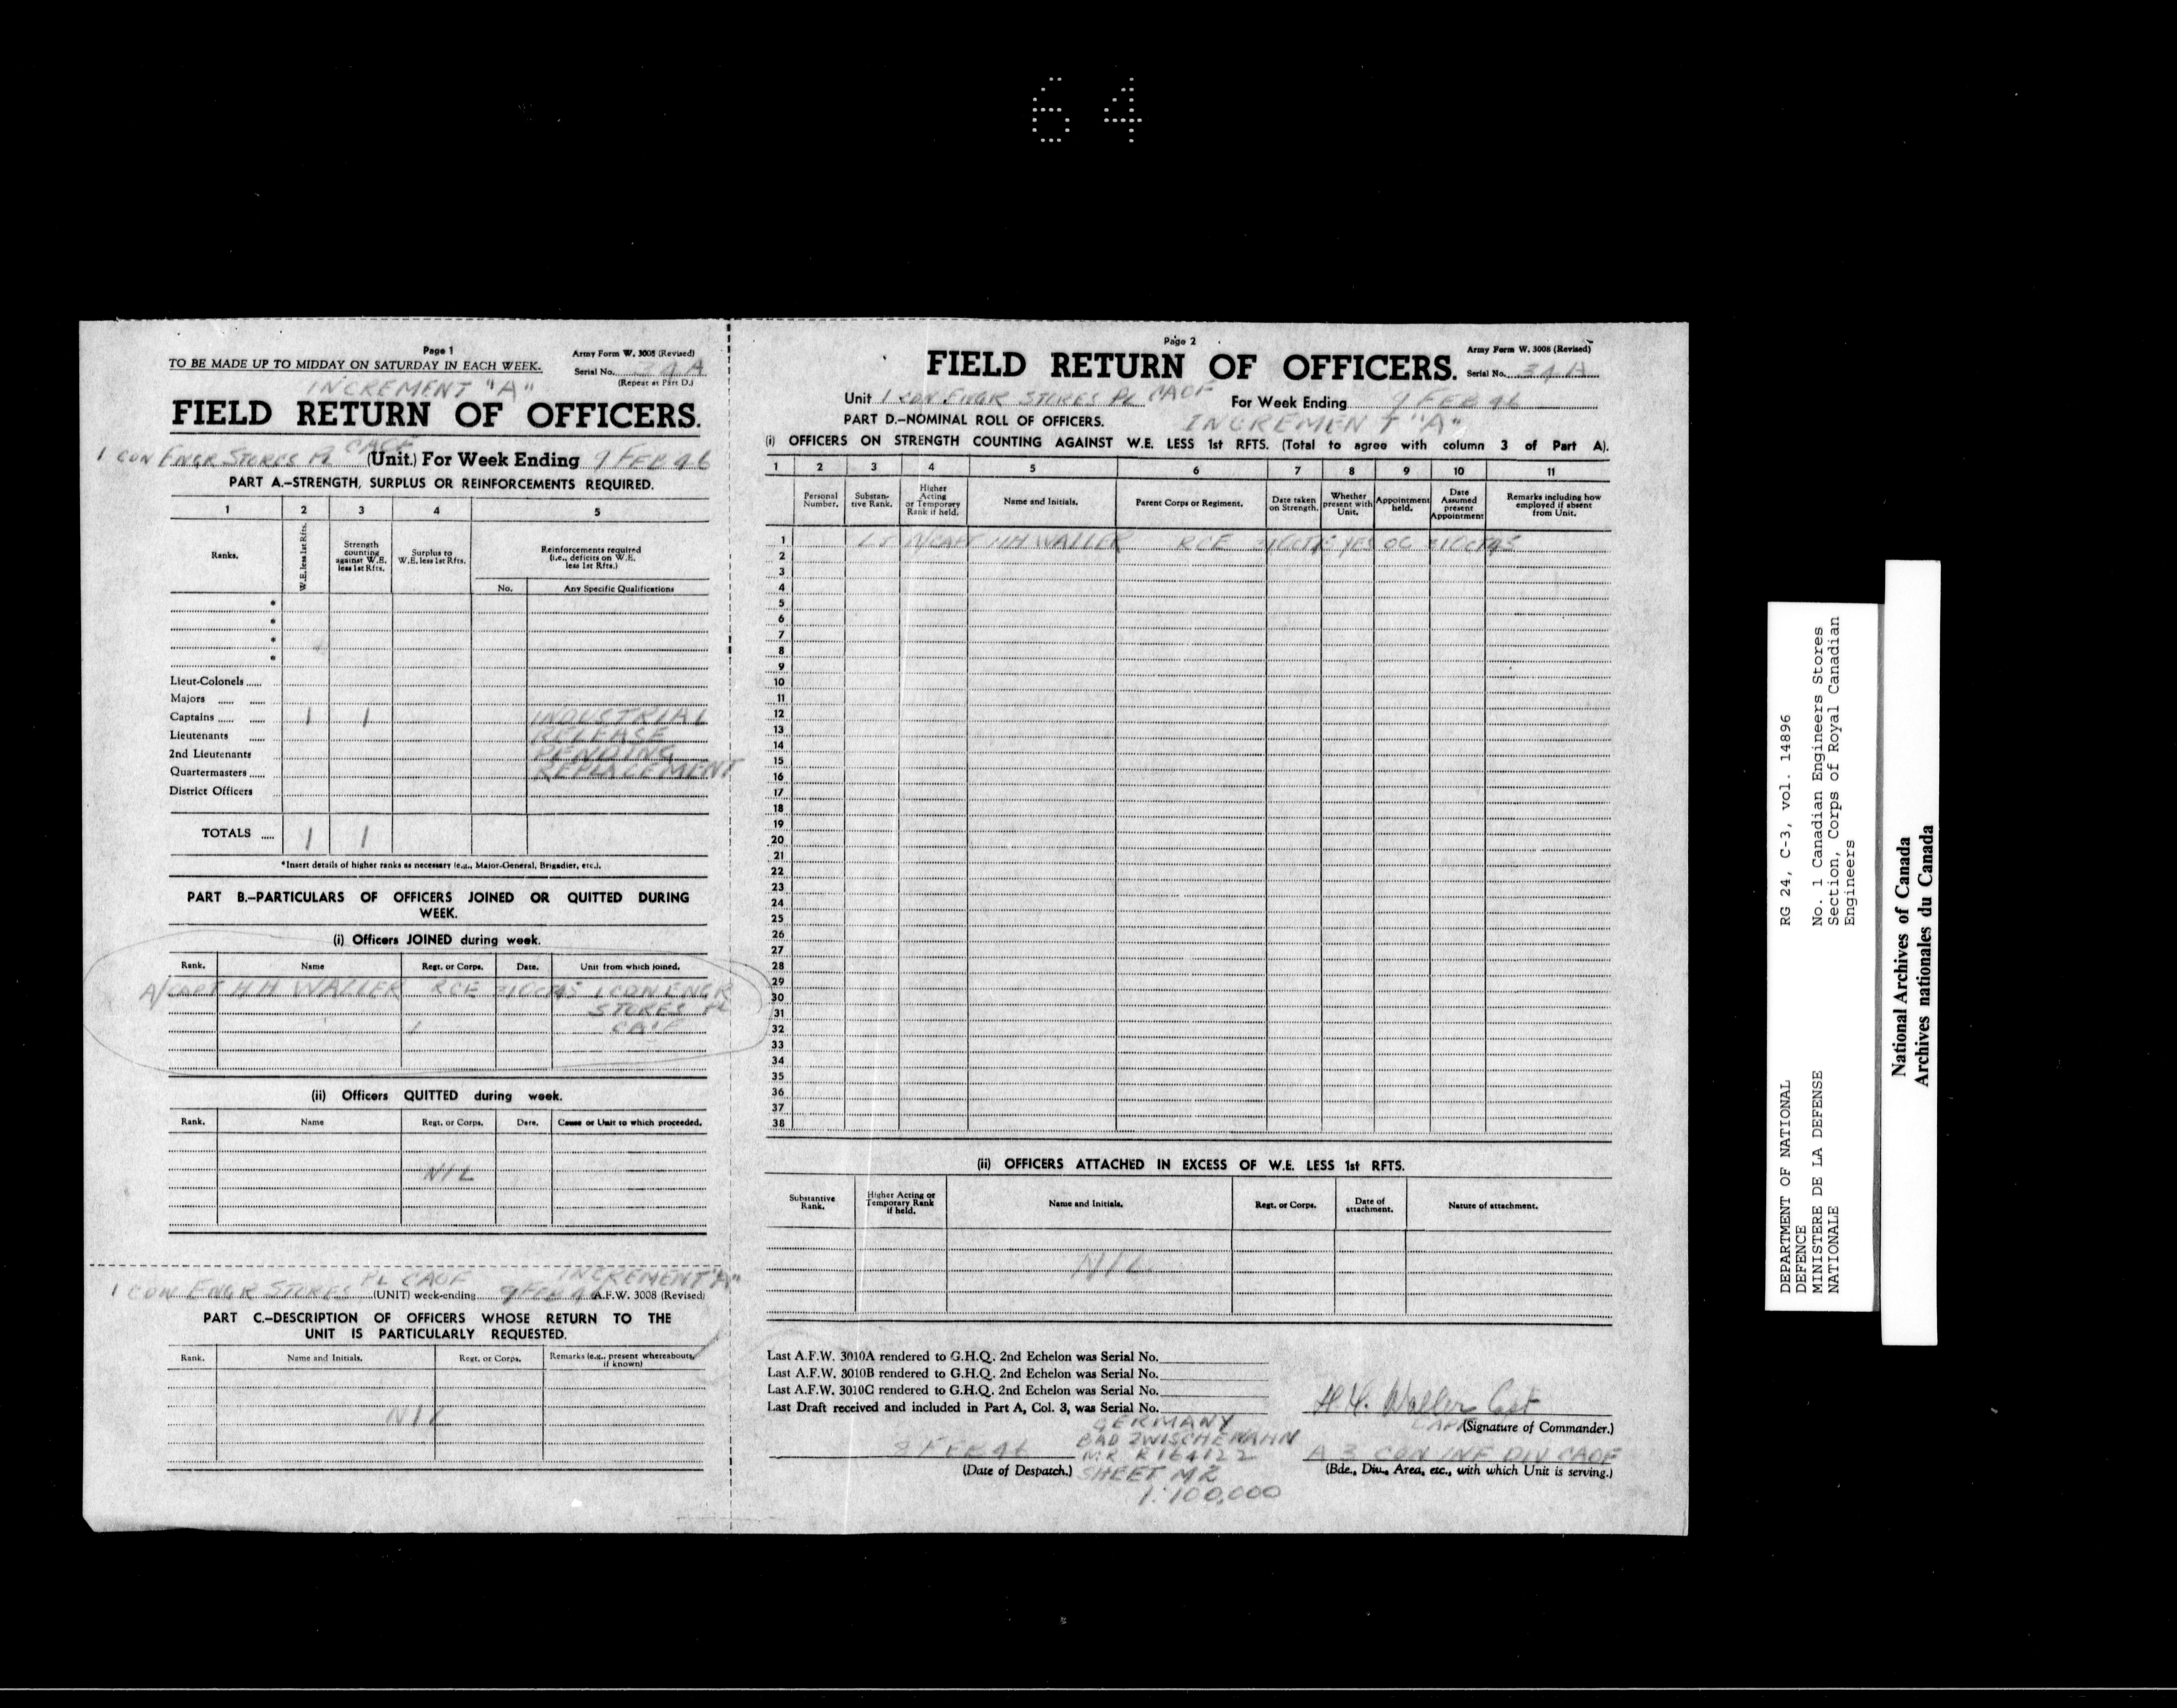 64
Page 1
TO BE MADE UP TO MIDDAY ON SATURDAY IN EACH WEEK.
Army Form W. 3008 (Revised)
Serial No. 34 A
(Repeat at Part D.)
INCREMENT "A"
FIELD RETURN OF OFFICERS.
1 CDN ENGR STORES PL CAOF (Unit.) For Week Ending 9 FEB 46
PART A.-STRENGTH, SURPLUS OR REINFORCEMENTS REQUIRED.
1 2 3 4 5
Ranks.
W.E. less 1st Rfts.
Strength counting against W.E. less 1st Rfts.
Surplus to W.E. less 1st Rfts.
Reinforcements required (i.e., deficits on W.E. less 1st Rfts.)
No. Any Specific Qualifications
*
*
*
*
Lieut-Colonels
Majors
Captains 1 1 INDUSTRIAL
Lieutenants RELEASE
2nd Lieutenants PENDING
Quartermasters REPLACEMENT
District Officers
TOTALS 1 1
*Insert details of higher ranks as necessary (e.g., Major-General, Brigadier, etc.).
PART B.-PARTICULARS OF OFFICERS JOINED OR QUITTED DURING
WEEK.
(i) Officers JOINED during week.
Rank. Name Regt. or Corps. Date. Unit from which joined.
A/CAPT H H WALLER RCE 31 OCT 45 1 CDN ENGR
STORES PL
CAOF
(ii) Officers QUITTED during week.
Rank. Name Regt. or Corps. Date. Cause or Unit to which proceeded.
NIL
1 CDN ENGR STORES PL CAOF (UNIT) week-ending 9 FEB 46 INCREMENT "A" A.F.W. 3008 (Revised)
PART C.-DESCRIPTION OF OFFICERS WHOSE RETURN TO THE
UNIT IS PARTICULARLY REQUESTED.
Rank. Name and Initials. Regt. or Corps. Remarks (e.g., present whereabouts, if known)
NIL
Page 2
Army Form W. 3008 (Revised)
FIELD RETURN OF OFFICERS. Serial No. 34 A
Unit 1 CDN ENGR STORES PL CAOF For Week Ending 9 FEB 46
PART D.-NOMINAL ROLL OF OFFICERS. INCREMENT "A"
(i) OFFICERS ON STRENGTH COUNTING AGAINST W.E. LESS 1st RFTS. (Total to agree with column 3 of Part A).
1 2 3 4 5 6 7 8 9 10 11
Personal Number.
Substantive Rank.
Higher Acting or Temporary Rank if held.
Name and Initials.
Parent Corps or Regiment.
Date taken on Strength.
Whether present with Unit.
Appointment held.
Date Assumed present Appointment
Remarks including how employed if absent from Unit.
1 LT A/CAPT HH WALLER RCE 31 OCT 45 YES OC 31 OCT 45
2
3
4
5
6
7
8
9
10
11
12
13
14
15
16
17
18
19
20
21
22
23
24
25
26
27
28
29
30
31
32
33
34
35
36
37
38
(ii) OFFICERS ATTACHED IN EXCESS OF W.E. LESS 1st RFTS.
Substantive Rank.
Higher Acting or Temporary Rank if held.
Name and Initials.
Regt. or Corps.
Date of attachment.
Nature of attachment.
NIL
Last A.F.W. 3010A rendered to G.H.Q. 2nd Echelon was Serial No.
Last A.F.W. 3010B rendered to G.H.Q. 2nd Echelon was Serial No.
Last A.F.W. 3010C rendered to G.H.Q. 2nd Echelon was Serial No.
Last Draft received and included in Part A, Col. 3, was Serial No.
H.H. Waller Capt
CAPT (Signature of Commander.)
GERMANY
BAD ZWISCHENAHN
8 FEB 46 MR R 164122
(Date of Despatch.) SHEET M2
1:100,000
A 3 CDN INF DIV CAOF
(Bde., Div., Area, etc., with which Unit is serving.)
DEPARTMENT OF NATIONAL
DEFENCE
MINISTERE DE LA DEFENSE
NATIONALE
RG 24, C-3, vol. 14896
No. 1 Canadian Engineers Stores
Section, Corps of Royal Canadian
Engineers
National Archives of Canada
Archives nationales du Canada